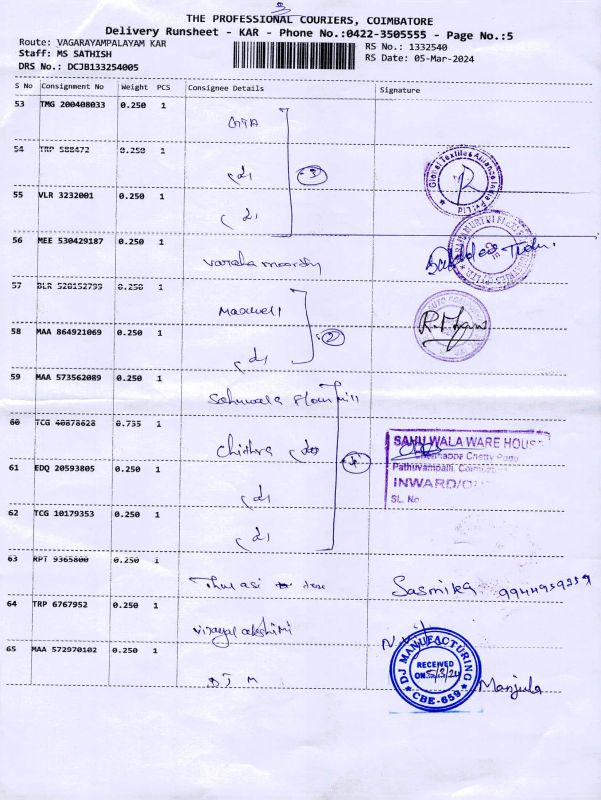 THE PROFESSIONAL COURIERS, COIMBATORE
Delivery Runsheet - KAR - Phone No.:0422-3505555 - Page No.:5
Route: VAGARAYAMPALAYAM KAR
Staff: MS SATHISH
DRS No.: DCJB133254005
RS No.: 1332540
RS Date: 05-Mar-2024
S No Consignment No Weight PCS Consignee Details Signature
53 TMG 200408033 0.250 1
54 TRP 588472 0.250 1
Global Textiles Alliance India Pvt Ltd
55 VLR 3232001 0.250 1
3
56 MEE 530429187 0.250 1
Varaha moorthy
57 BLR 528152799 0.250 1
Maxwell
58 MAA 864921069 0.250 1
2
59 MAA 573562089 0.250 1
Sahuwala Flour mill
60 TCG 40878628 0.735 1
Chithra
SAHU WALA WARE HOUS
Chennappa Chetty Pudu
Pathuvampalli, Coimbatore
INWARD/O
SL. No
61 EDQ 20593805 0.250 1
4
62 TCG 10179353 0.250 1
63 RPT 9365800 0.250 1
Thulasi
Sasmika 9944959359
64 TRP 6767952 0.250 1
Vijayalakshimi
65 MAA 572970102 0.250 1
D J M
DJ MANUFACTURING
RECEIVED
ON 5/3/24
CBE-659
Manjula